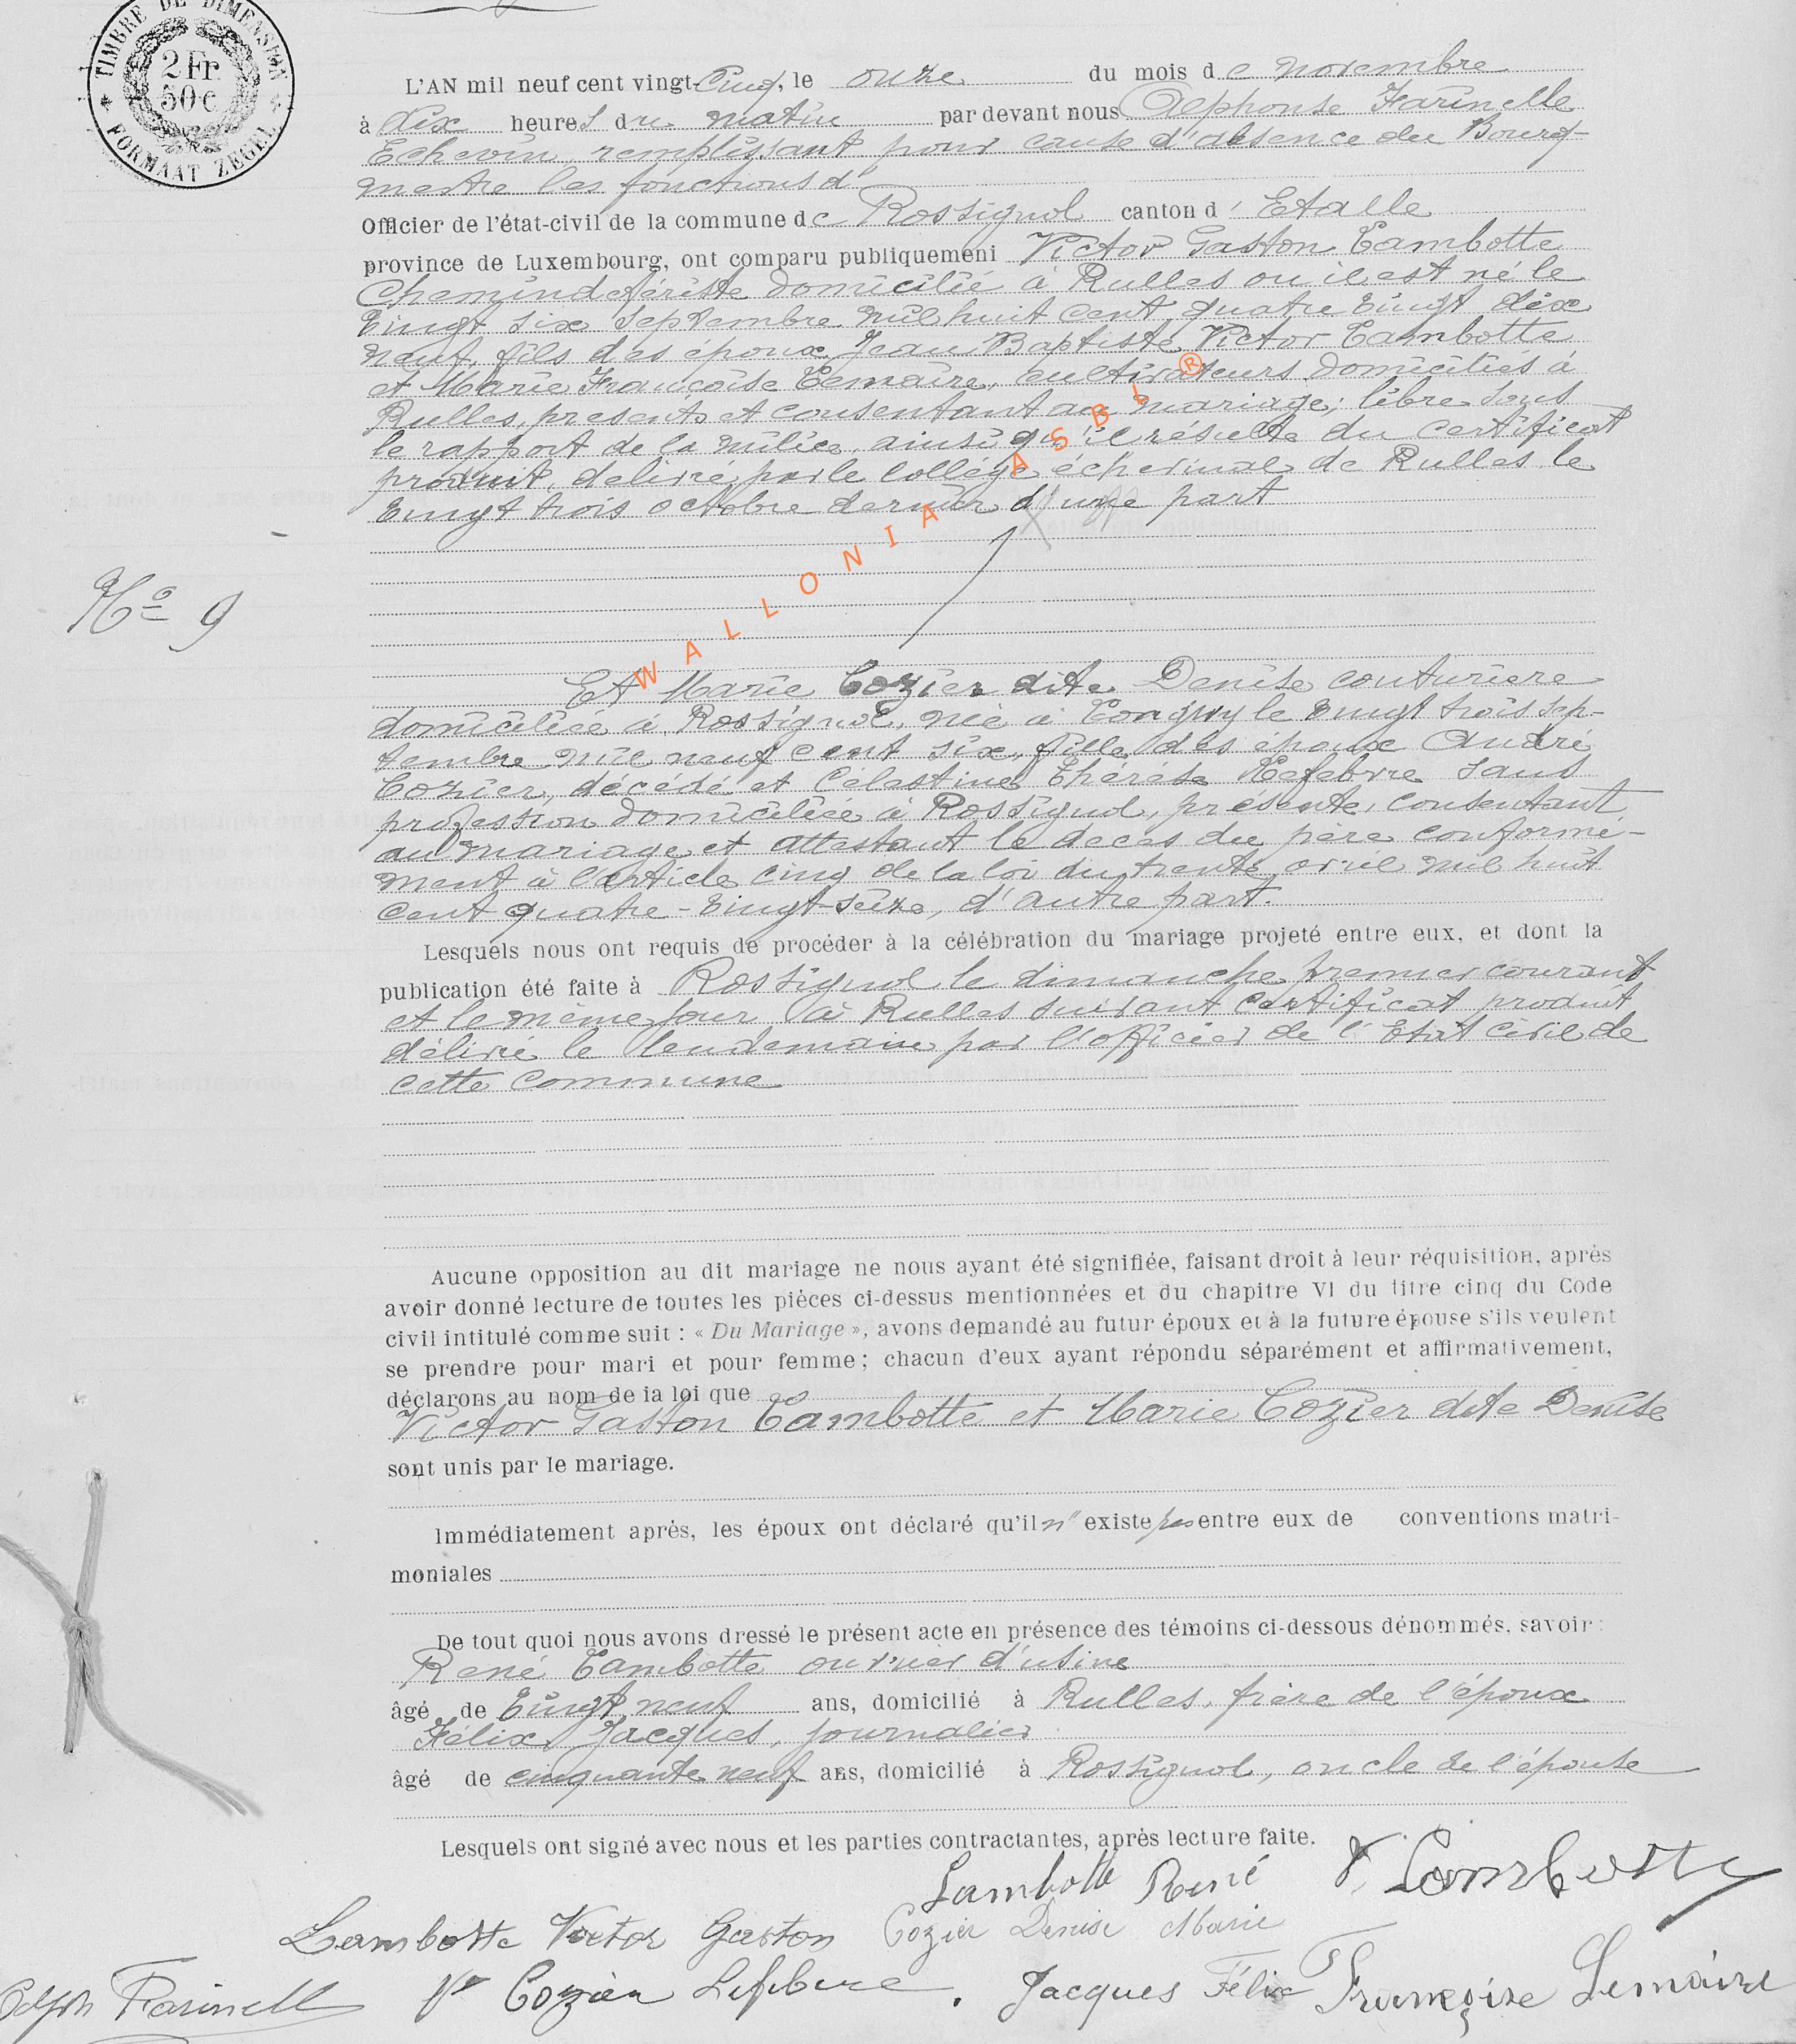 TIMBRE DE DIMENSION
2 Fr.
50 c
FORMAAT ZEGEL
L'AN mil neuf cent vingt-Cinq, le onze du mois de novembre
à dix heures du matin par devant nous Alphonse Farinelle
Echevin, remplissant pour cause d'absence du Bourg-
mestre les fonctions d'
Officier de l'état-civil de la commune de Rossignol canton d'Etalle
province de Luxembourg, ont comparu publiquement Victor Gaston Lambotte
Chemindefériste domicilié à Rulles ou il est né le
vingt six septembre mil huit cent quatre vingt dix
neuf, fils des époux Jean Baptiste Victor Lambotte
et Marie Françoise Lemaire, cultivateurs domiciliés à
Rulles, présents et consentant au mariage; libre sous
le rapport de la milice, ainsi qu'il résulte du certificat
produit, délivré par le collège échevinal de Rulles le
vingt trois octobre dernier d'une part
N° 9
WALLONIA ASBL ®
Et Marie Cozier dite Denise couturière
domiciliée à Rossignol, née à Longwy le vingt trois sep-
tembre mil neuf cent six, fille des époux André
Cozier, décédé et Célestine Thérèse Lefebvre sans
profession domiciliée à Rossignol, présente, consentant
au mariage et attestant le décès du père conformé-
ment à l'article cinq de la loi du trente avril mil huit
cent quatre-vingt-seize, d'autre part.
Lesquels nous ont requis de procéder à la célébration du mariage projeté entre eux, et dont la
publication été faite à Rossignol le dimanche premier courant
et le même jour à Rulles suivant certificat produit
délivré le lendemain par l'officier de l'Etat civil de
cette commune
Aucune opposition au dit mariage ne nous ayant été signifiée, faisant droit à leur réquisition, après
avoir donné lecture de toutes les pièces ci-dessus mentionnées et du chapitre VI du titre cinq du Code
civil intitulé comme suit : « Du Mariage », avons demandé au futur époux et à la future épouse s'ils veulent
se prendre pour mari et pour femme ; chacun d'eux ayant répondu séparément et affirmativement,
déclarons au nom de la loi que
Victor Gaston Lambotte et Marie Cozier dite Denise
sont unis par le mariage.
Immédiatement après, les époux ont déclaré qu'il n'existe pas entre eux de conventions matri-
moniales
De tout quoi nous avons dressé le présent acte en présence des témoins ci-dessous dénommés, savoir :
René Lambotte ouvrier d'usine
âgé de vingt neuf ans, domicilié à Rulles, frère de l'époux
Félix Jacques, journalier
âgé de cinquante neuf ans, domicilié à Rossignol, oncle de l'épouse
Lesquels ont signé avec nous et les parties contractantes, après lecture faite.
Lambotte René V. Lambotte
Lambotte Victor Gaston Cozier Denise Marie
Alph Farinelle Vve Cozier Lefebvre. Jacques Félix Françoise Lemaire